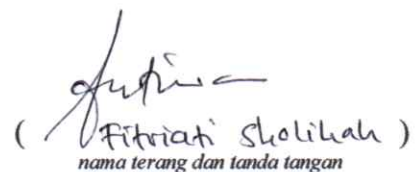 ( Fitriati Sholihah )
nama terang dan tanda tangan